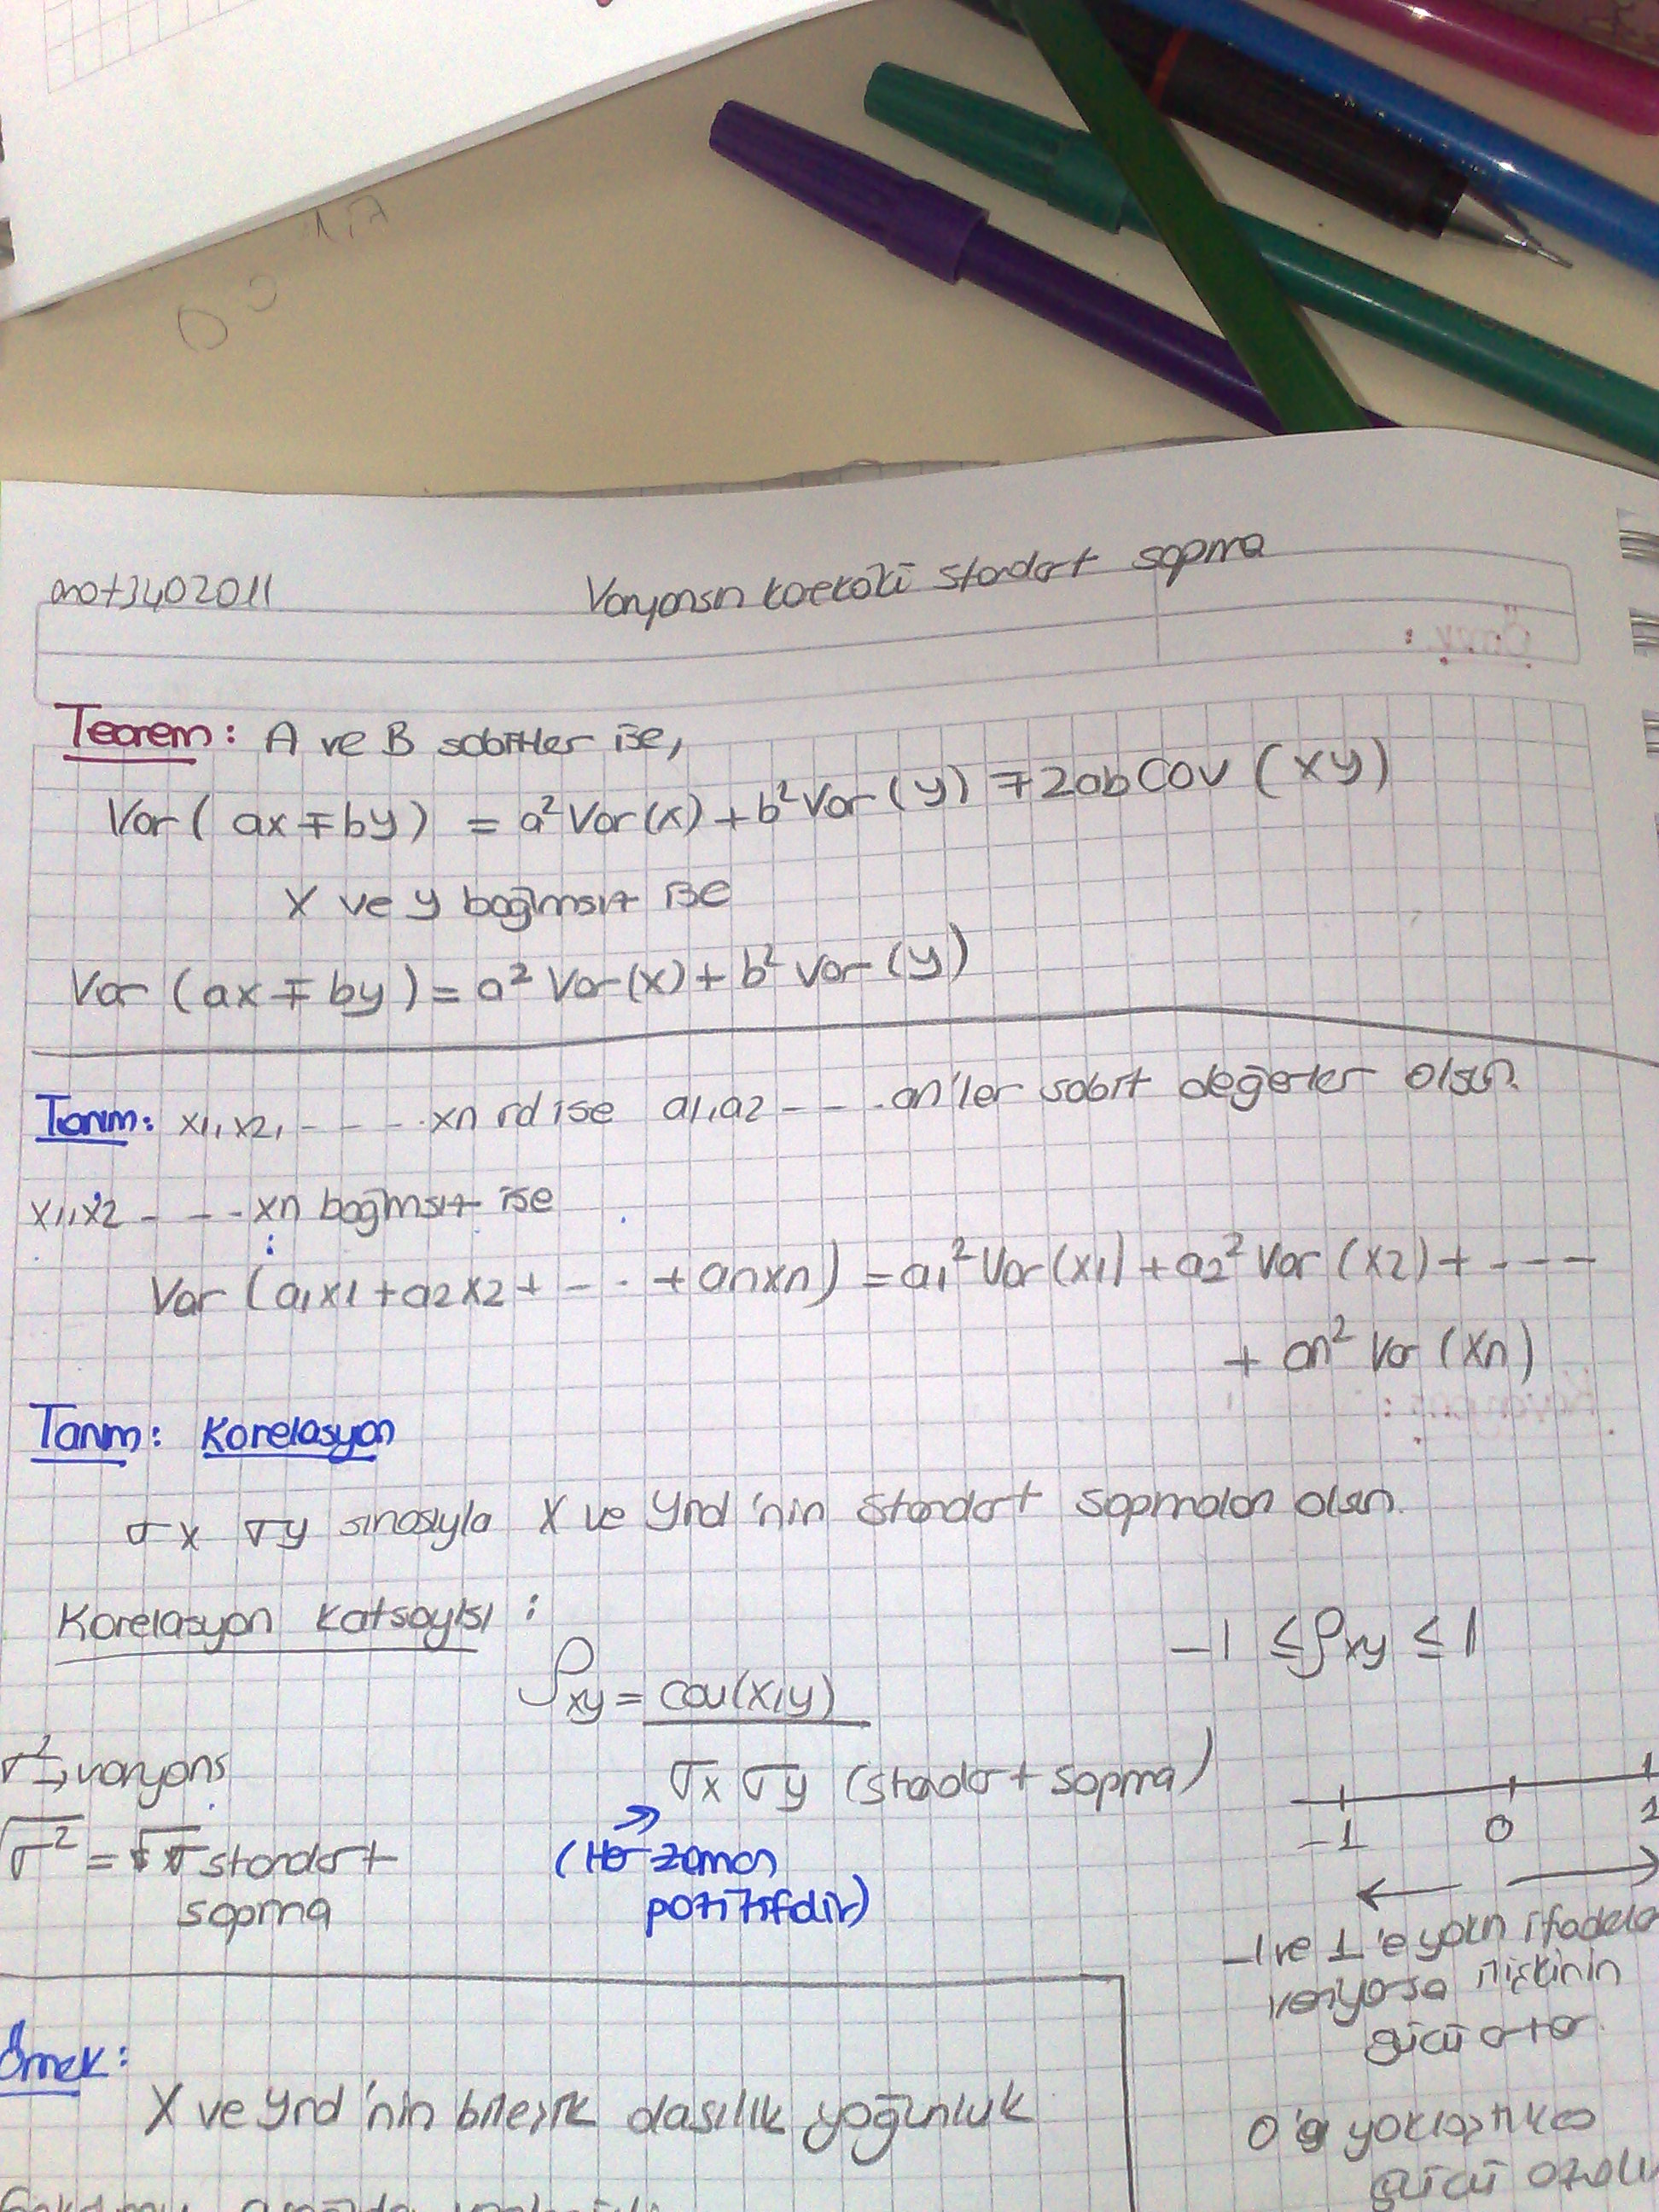 mat3402011
Varyansın karekökü standart sapma
Teorem: A ve B sabitler ise,
Var( ax ∓ by) = a² Var(x) + b² Var(y) ∓ 2ab Cov (xy)
X ve y bağımsız ise
Var (ax ∓ by) = a² Var(x) + b² Var (y)
Tanım: x1, x2, - - - - xn rd ise a1, a2 - - - an'ler sabit değerler olsun.
x1, x2 - - - xn bağımsız ise
Var (a1x1 + a2x2 + - - - + anxn) = a1² Var(x1) + a2² Var (x2) + - - - -
+ an² Var (xn)
Tanım: Korelasyon
σx σy sırasıyla X ve Y rd'nin standart sapmaları olsun.
Korelasyon Katsayısı :
-1 ≤ ρxy ≤ 1
ρxy = cov(x,y)
σx σy (standart sapma)
σ² → varyans
√σ² = σ standart
sapma
(Her zaman
pozitifdir)
-1 0 1
-1 ve 1'e yakın ifadeler
veriyorsa ilişkinin
gücü artar.
0'a yaklaştıkça
gücü azalır
Örnek:
X ve Y rd'nin bileşik olasılık yoğunluk